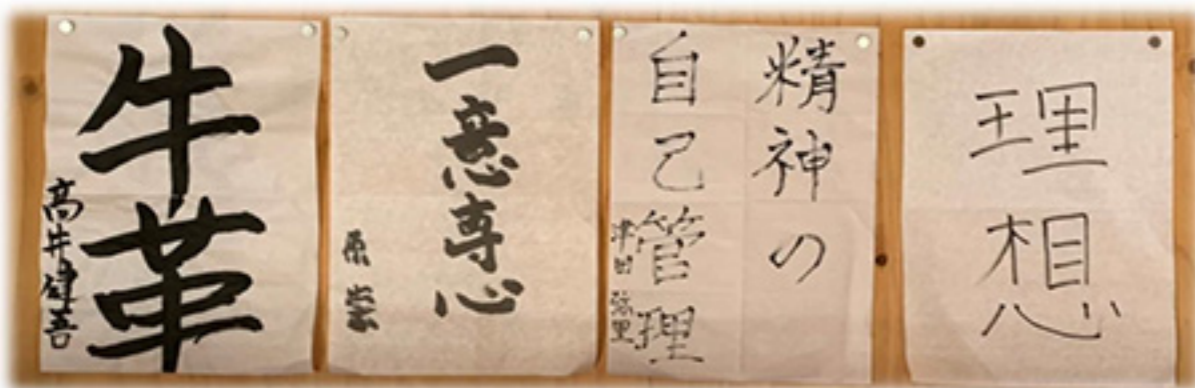 牛革
高井健吾
一意専心
精神の
自己管理
津田
理想